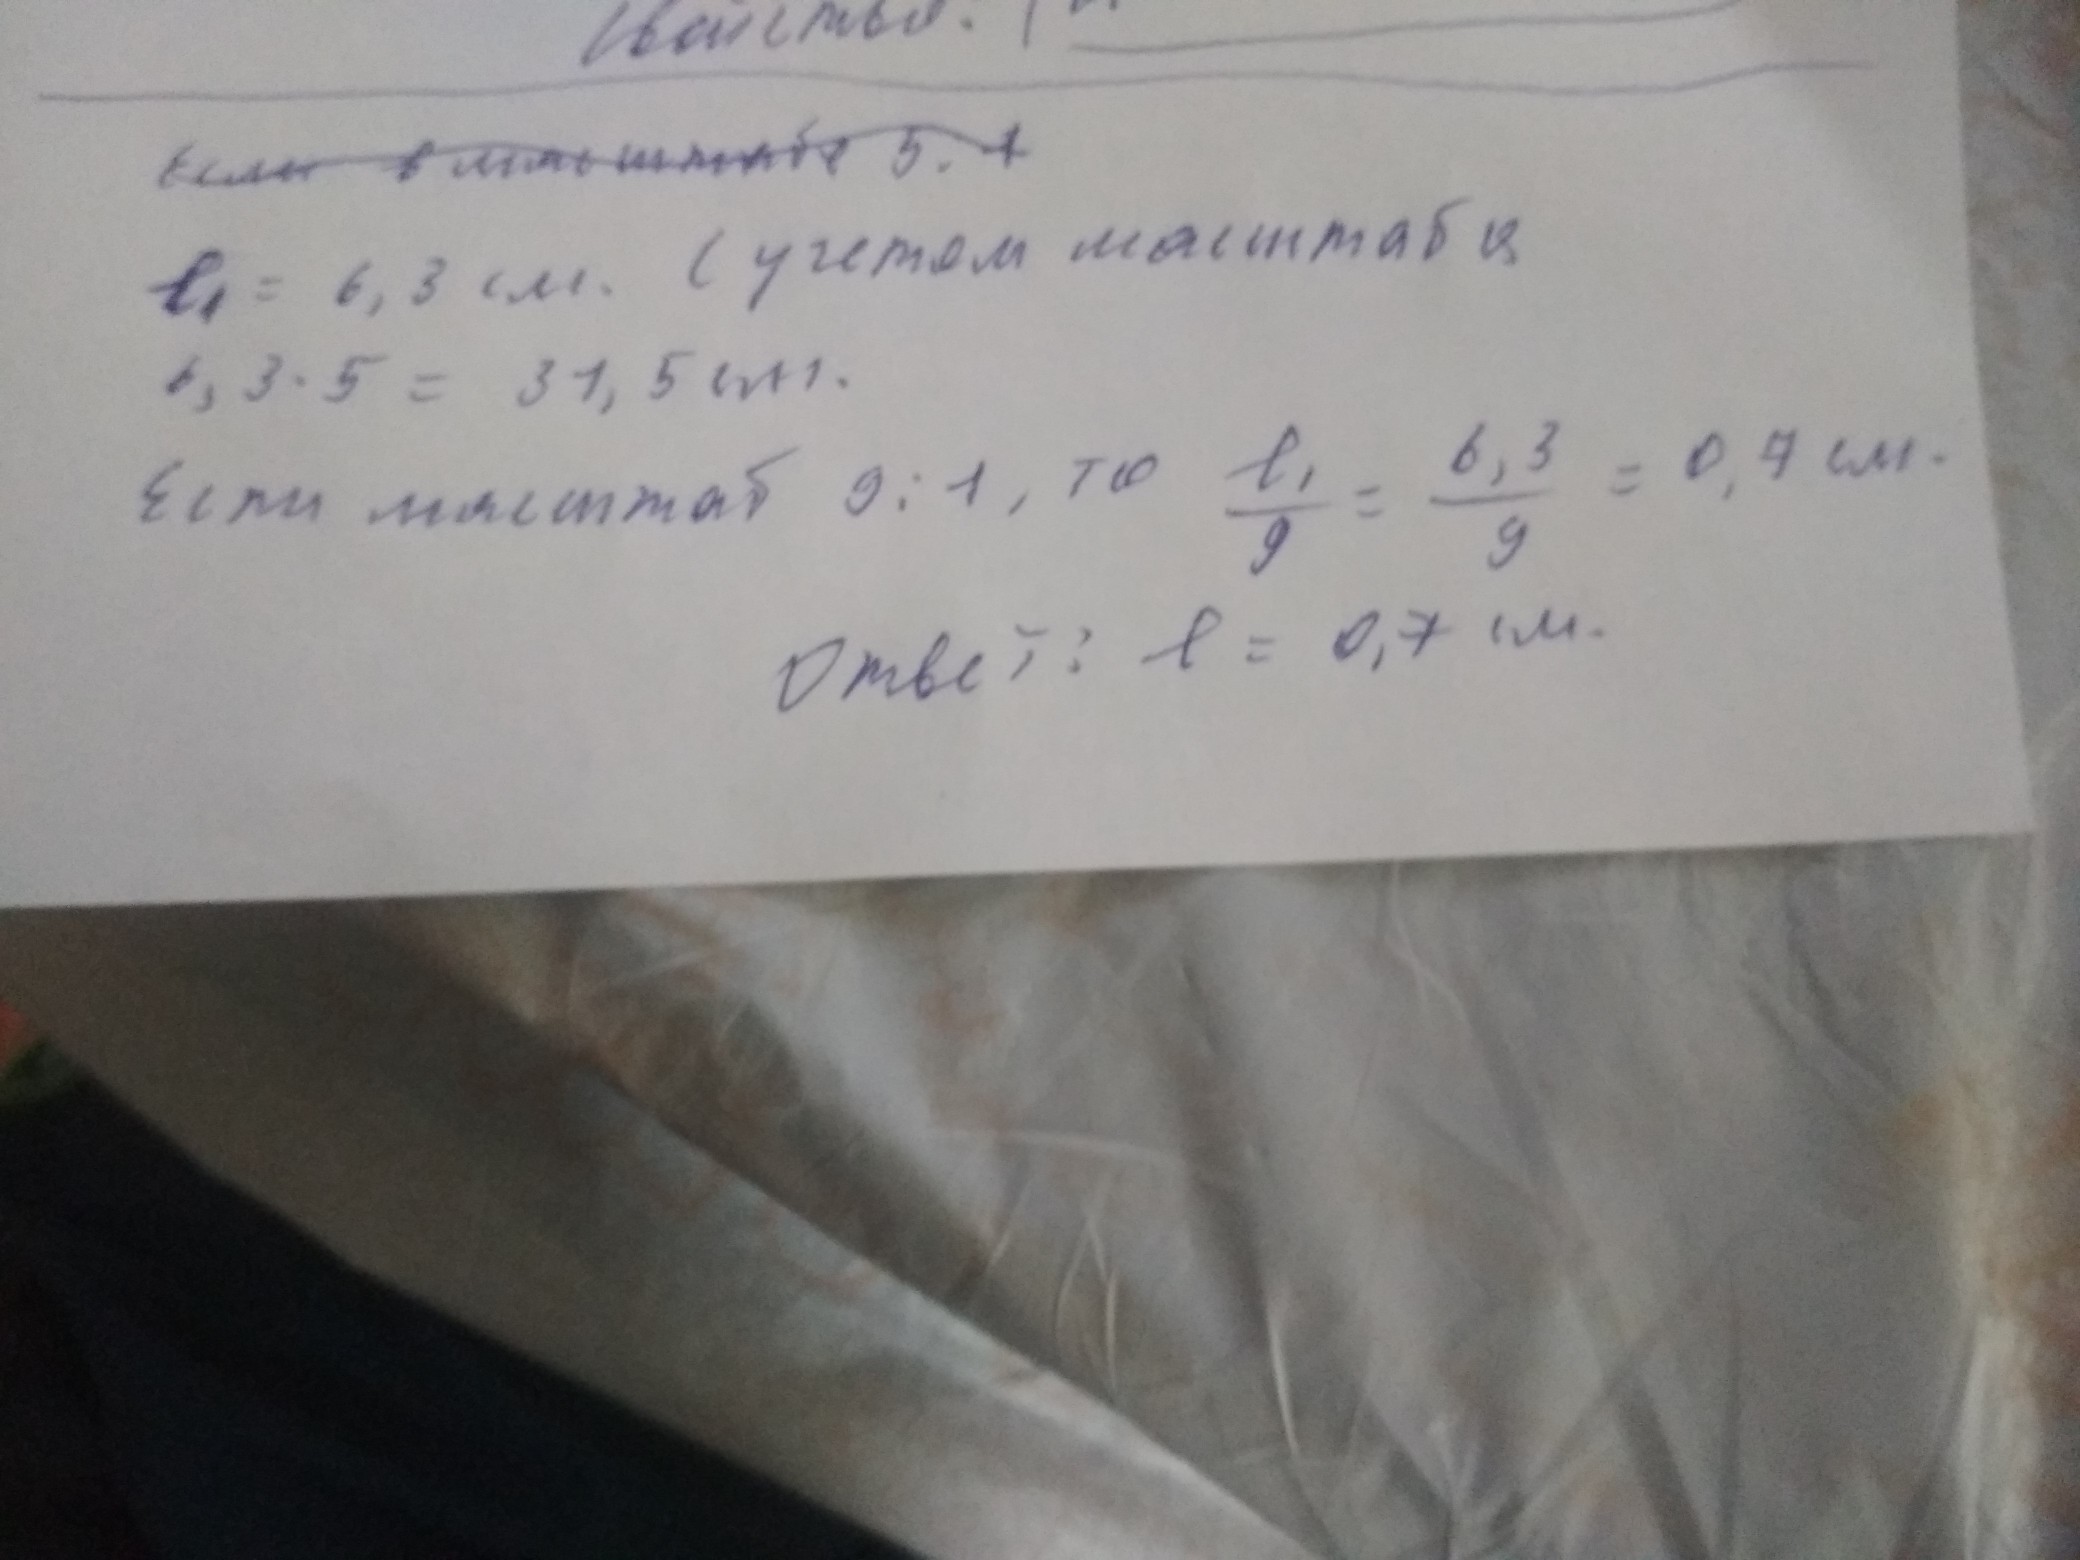 Свойство:
Если в масштабе 5:1
l₁ = 6,3 см. с учетом масштаба
6,3·5 = 31,5 см.
Если масштаб 9:1, то l₁/9 = 6,3/9 = 0,7 см.
Ответ: l = 0,7 см.